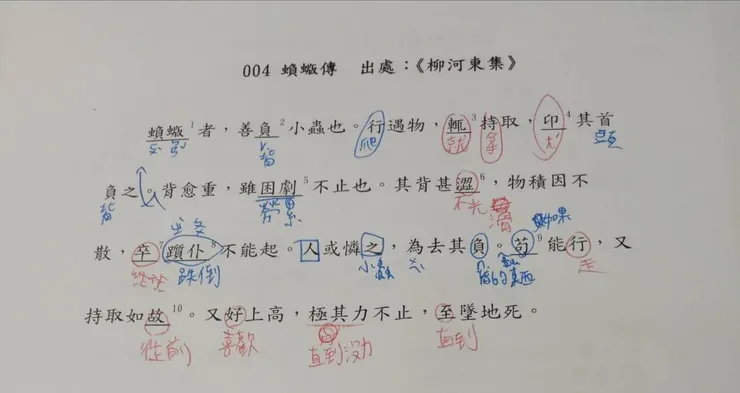 004 蝜蝂傳 出處：《柳河東集》
蝜蝂1者，善負2小蟲也。行遇物，輒3持取，卬4其首
背 爬 就 拿 頭
負之。背愈重，雖困劇5不止也。其背甚澀6，物積因不
背 勞累 不光滑
散，卒7躓仆8不能起。人或憐之，為去其負。苟9能行，又
跌倒 小蟲 背的東西 如果 走
持取如故10。又好上高，極其力不止，至墜地死。
從前 喜歡 直到沒力 直到